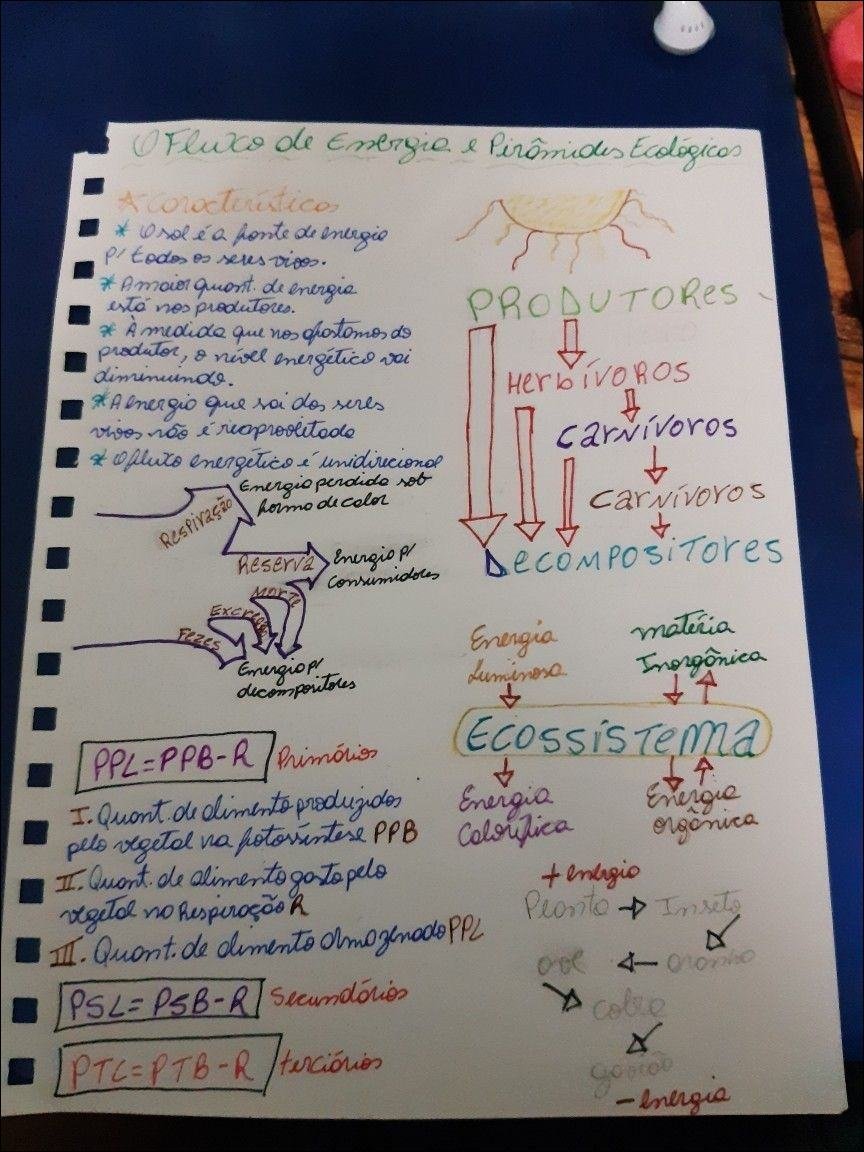 Fluxo de Energia e Pirâmides Ecológicas
Características
* O sol é a fonte de energia
p/ todos os seres vivos.
* A maior quant. de energia
está nos produtores.
* À medida que nos afastamos do
produtor, o nível energético vai
diminuindo.
* A energia que sai dos seres
vivos não é reaproveitada
* O fluxo energético é unidirecional
Respiração
Energia perdida sob
forma de calor
Reserva
Energia p/
Consumidores
Morte
Excreção
Fezes
Energia p/
decompositores
PPL=PPB-R Primários
I. Quant. de alimento produzidos
pelo vegetal na fotossíntese PPB
II. Quant. de alimento gasto pelo
vegetal na Respiração R
III. Quant. de alimento armazenado PPL
PSL=PSB-R Secundários
PTL=PTB-R terciários
PRODUTORes
HerbívoROS
carnívoros
carnívoros
Decompositores
Energia
Luminosa
matéria
Inorgânica
Ecossistema
Energia
Calorífica
Energia
orgânica
+ energia
Planta → Inseto
ave ← aranha
cobra
gavião
- energia